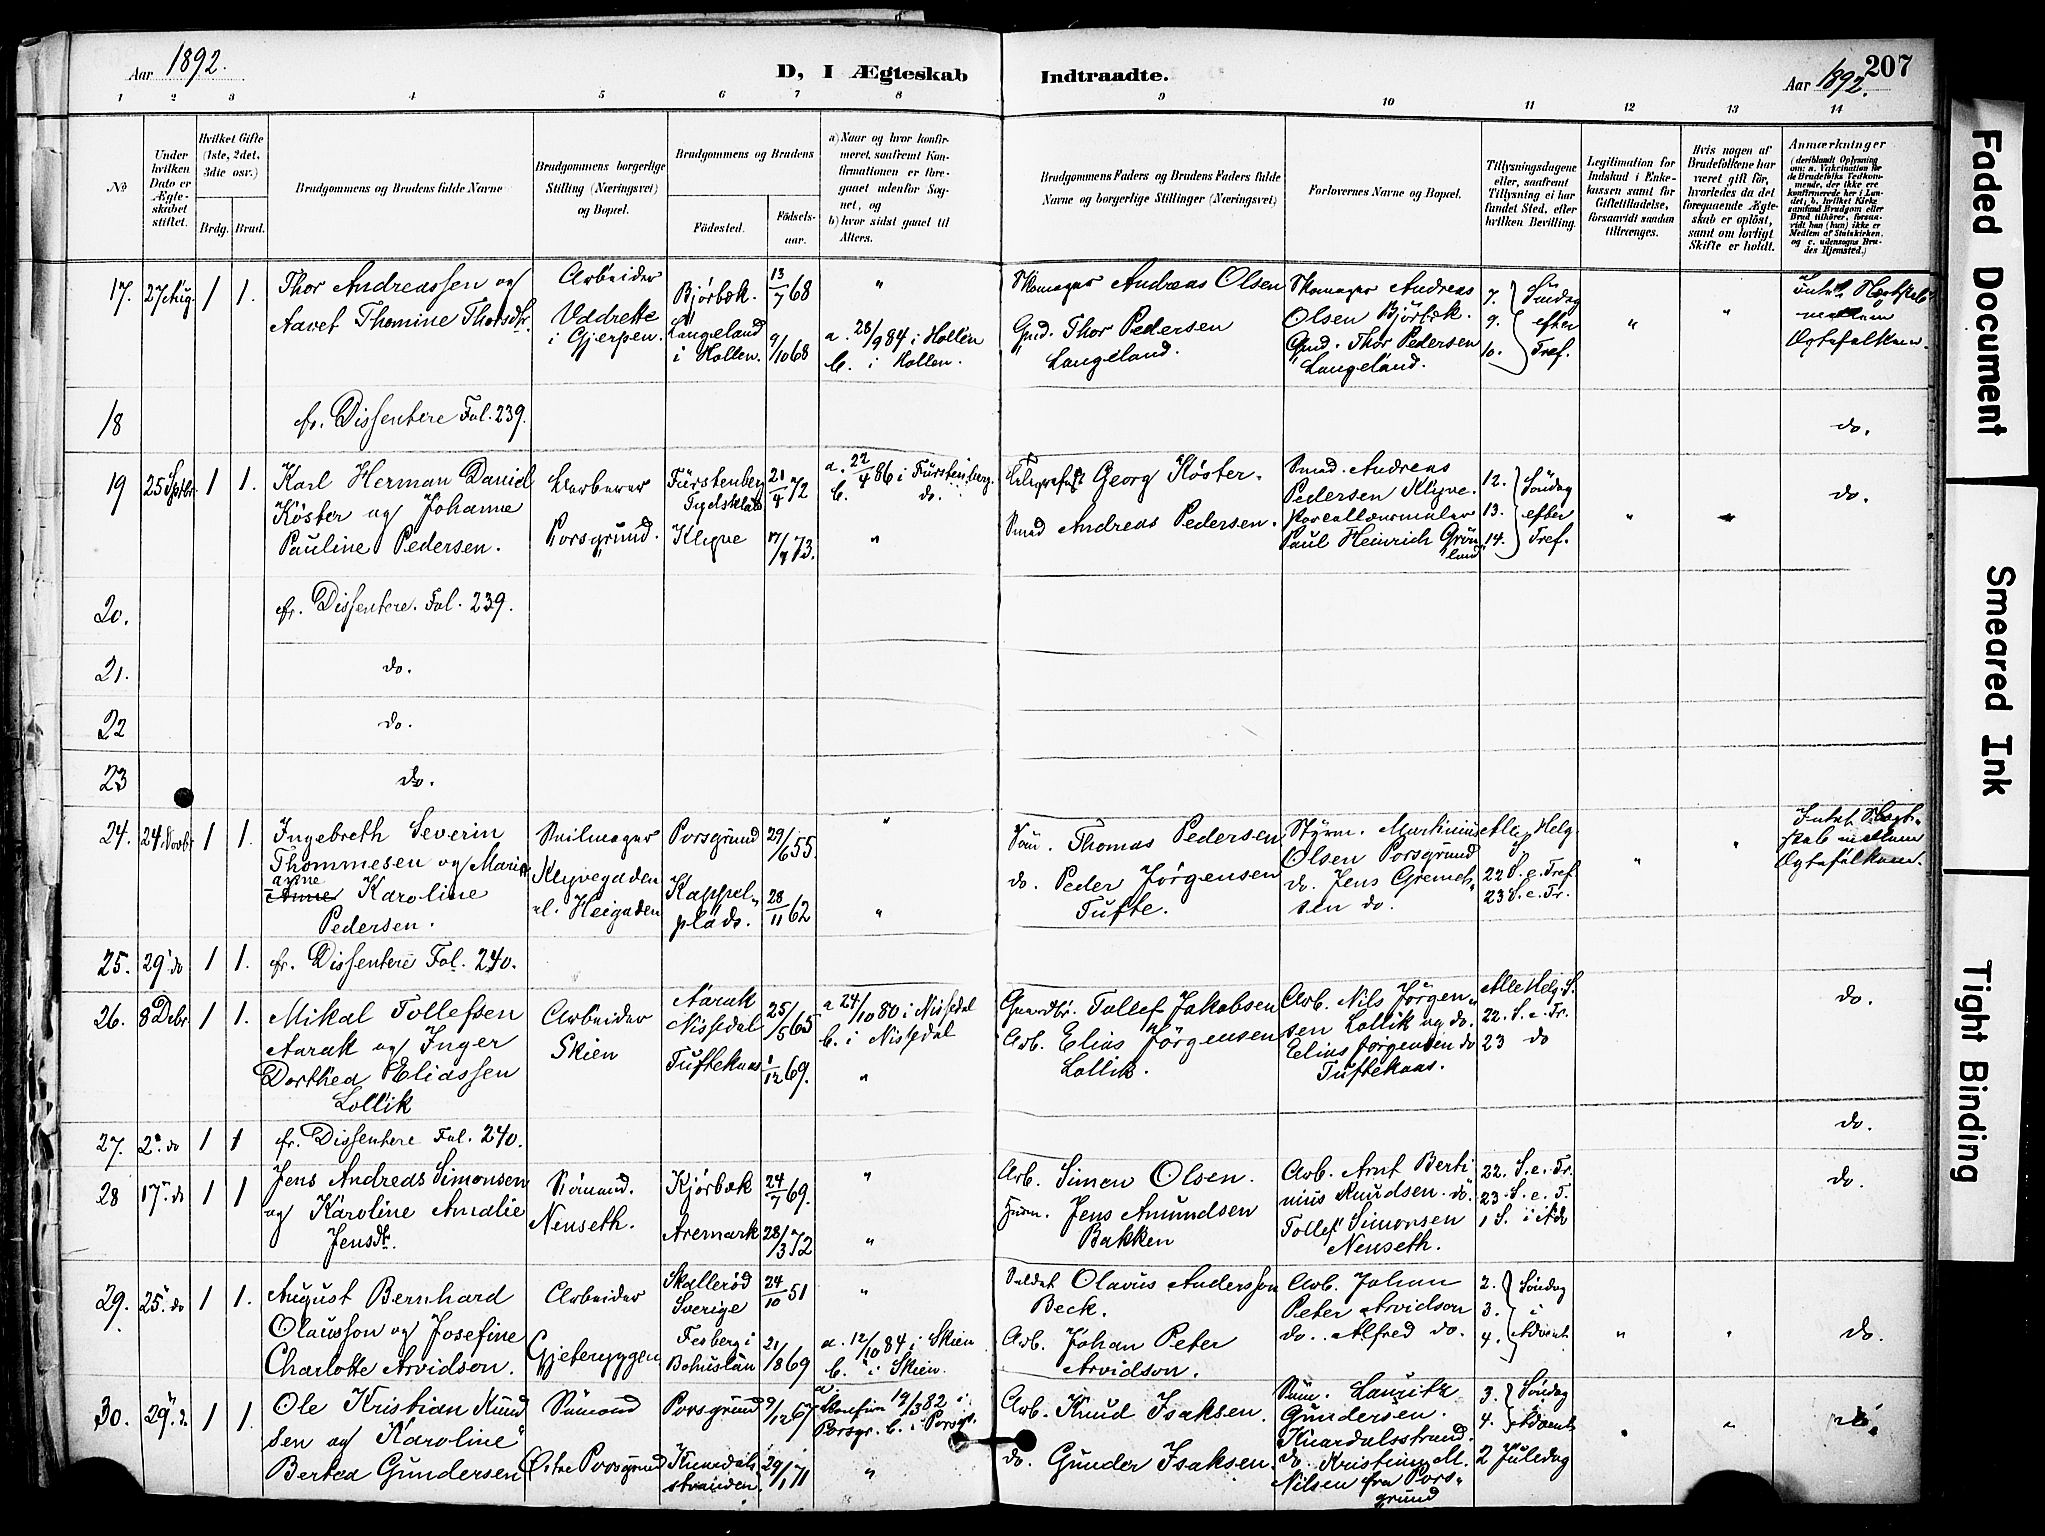 Aar 1892.
D, I Ægteskab Indtraadte.
Aar 1892.
207
1 2 3 4 5 6 7 8 9 10 11 12 13 14
No
Under hvilken Dato er Ægteskabet stiftet.
Hvilket Gifte (1ste, 2det, 3die osv.)
Brdg. Brud.
Brudgommens og Brudens fulde Navne
Brudgommens borgerlige Stilling (Næringsvei) og Bopæl.
Brudgommens og Brudens
Fødested.
Fødselsaar.
a) Naar og hvor konfirmeret, saafremt Konfirmationen er foregaaet udenfor Sognet, og
b) hvor sidst gaaet til Alters.
Brudgommens Faders og Brudens Faders fulde Navne og borgerlige Stillinger (Næringsvei)
Forlovernes Navne og Bopæl.
Tillysningsdagene eller, saafremt Tillysning ei har fundet Sted, efter hvilken Bevilling.
Legitimation for Indskud i Enkekassen samt for Giftetilladelse, forsaavidt saadan tiltrænges.
Hvis nogen af Brudefolkene har været gift før, hvorledes da det foregaaende Ægteskab er opløst, samt om lovligt Skifte er holdt.
Anmærkninger
(deriblandt Oplysning om: a. Vakcination for de Brudefolks Vedkommende, der ikke ere konfirmerede her i Landet; b. hvilket Kirkesamfund Brudgom eller Brud tilhører, forsaavidt han (hun) ikke er Medlem af Statskirken, og c. udensogns Brudes Hjemsted.)
17. 27 Aug. 1 1. Thor Andreassen og Arbeider Bjørbæk. 13/7 68 " Skomager Andreas Olsen Skomager Andreas 7. Søndag
Aavet Thomine Thorsdtr. i Gjerpen. Langeland i Hollen. 9/10 68 a. 28/9 84 i Hollen b. i Hollen. Gmd. Thor Pedersen Langeland. Olsen Bjørbæk. Gmd. Thor Pedersen Langeland. 9. efter 10. Tref. " " Intet Slægtskab mellem Ægtefolkene.
18 cfr. Dissentere Fol. 239. do.
19 25 Septbr. 1 1. Karl Herman Daniel Køster og Johanne Pauline Pedersen. Porsgrund. Fürstenberg Tydskland 21/4 72 a. 22/4 86 i Fürstenberg. b. do. Georg Køster. Smed. Andreas Pedersen Klyve. 12. Søndag
Klyve 17/7 73. " Smed Andreas Pedersen. Paul Heinrich Grønland 13. efter 14. Tref. " do.
20. cfr. Dissentere. Fol. 239.
21. do.
22 do.
23 do.
24. 24 Novbr 1 1. Ingebreth Severin Thommesen og Marie Karoline Pedersen. Seilmager Klyvegaden el. Heigaden Porsgrund 29/6 55. " Thomas Pedersen Styrm. Martinius Olsen Porsgrund Alle Helg.
Kappelplads. 28/11 62 " do. Peder Jørgensen Tufte. do. Jens do. 22 S. e. Tref 23 S. e. Tr. " " Intet Slægtskab mellem Ægtefolkene.
25. 29 do 1 1. cfr. Dissentere Fol. 240.
26. 8 Debr. 1 1. Mikal Tollefsen Aarak og Inger Dorthea Eliassen Lollik Arbeider Skien Aarak Nissedal 25/5 65 a 24/10 80 i Nissedal b. i Nissedal Gaardbr. Tollef Jakobsen Arb. Nils Jørgensen Lollik og do. Alle Helg. S.
Tuftekaas 1/12 69. " Arb. Elias Jørgensen Lollik. Elias Jørgensen do Tuftekaas. 22. S. e. Tr. 23 do do.
27. 2 do 1 1 cfr. Dissentere Fol. 240. do.
28 17 do 1 1 Jens Andreas Simonsen og Karoline Amalie Jensdtr. Sømand. Nenseth. Kjørbæk 24/7 69. " Arb. Simon Olsen. Arb. Arnt Bertinius Knudsen. do. 22. S. e. Tr.
Aremark 28/3 72 " Husm. Jens Amundsen Bakken Tollef Simonsen Nenseth. 23 S. e. T. 1 S. i Adv do.
29. 25 do 1 1. August Bernhard Olausson og Josefine Charlotte Arvidson. Arbeider Gjeteryggen Skallerød Sverige 24/10 51 " Soldat Olavus Andersson Beck. Arb. Johan Peter Arvidson 2. Søndag
Fesberg i Bohuslän 21/8 69 a. 12/10 84 i Skien b. " i Skien. Arb. Johan Peter Arvidson. do. Alfred do. 3. i 4. Advent. " " do.
30. 29 d. 1 1. Ole Kristian Knudsen og Karoline Bertea Gundersen Sømand Østre Porsgrund Porsgrund 9/12 67 a. 19/3 82 i Porsgr. b. i Porsgr. Arb. Knud Isaksen. Lauritz Gundersen. Knardalsstrand. 3. Søndag 4. Advent
Knardalsstranden. 29/1 71 " do. Gunder Isaksen. do. Kristian M. Nilsen fra Porsgrund 2 Juledag " "
Faded Document
Smeared Ink
Tight Binding